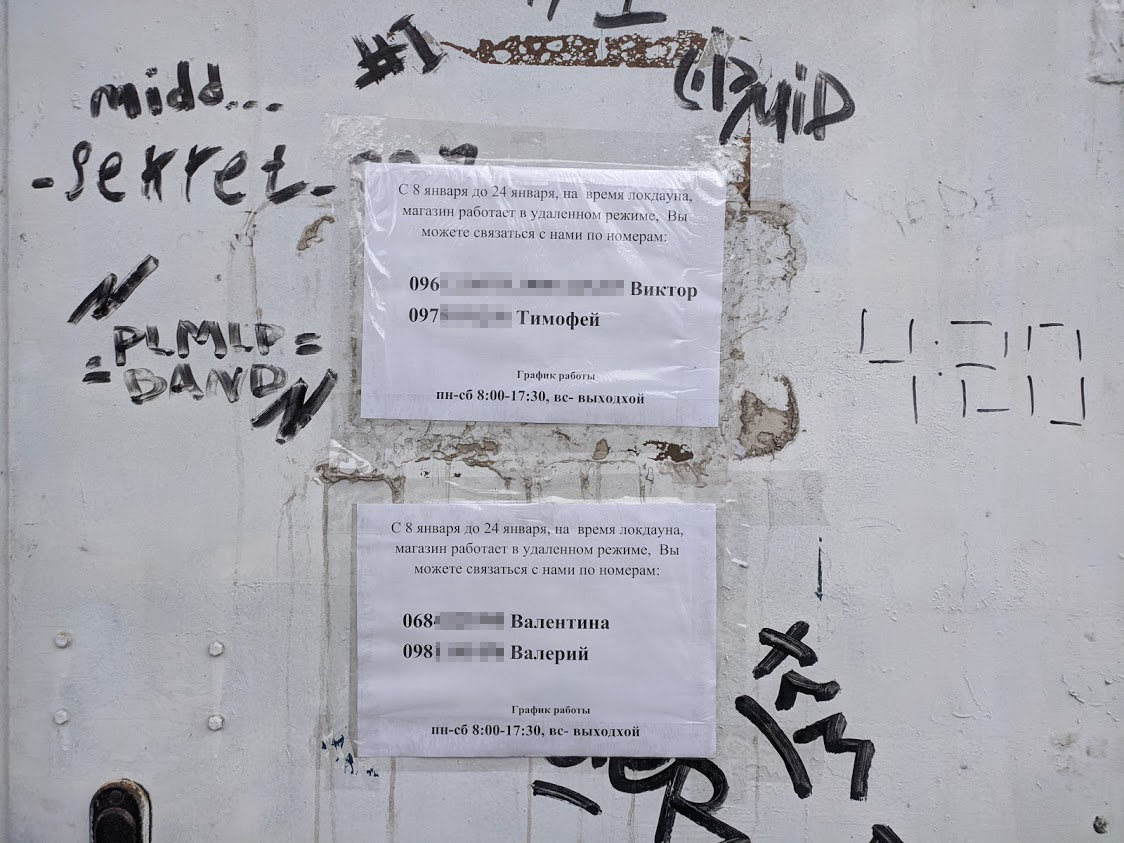 #1
midd...
-Sekret-
С 8 января до 24 января, на время локдауна,
магазин работает в удаленном режиме, Вы
можете связаться с нами по номерам:
096 Виктор
097 Тимофей
График работы
пн-сб 8:00-17:30, вс- выходхой
=PLMLP=
BAND
4:20
С 8 января до 24 января, на время локдауна,
магазин работает в удаленном режиме, Вы
можете связаться с нами по номерам:
068 Валентина
098 Валерий
График работы
пн-сб 8:00-17:30, вс- выходхой